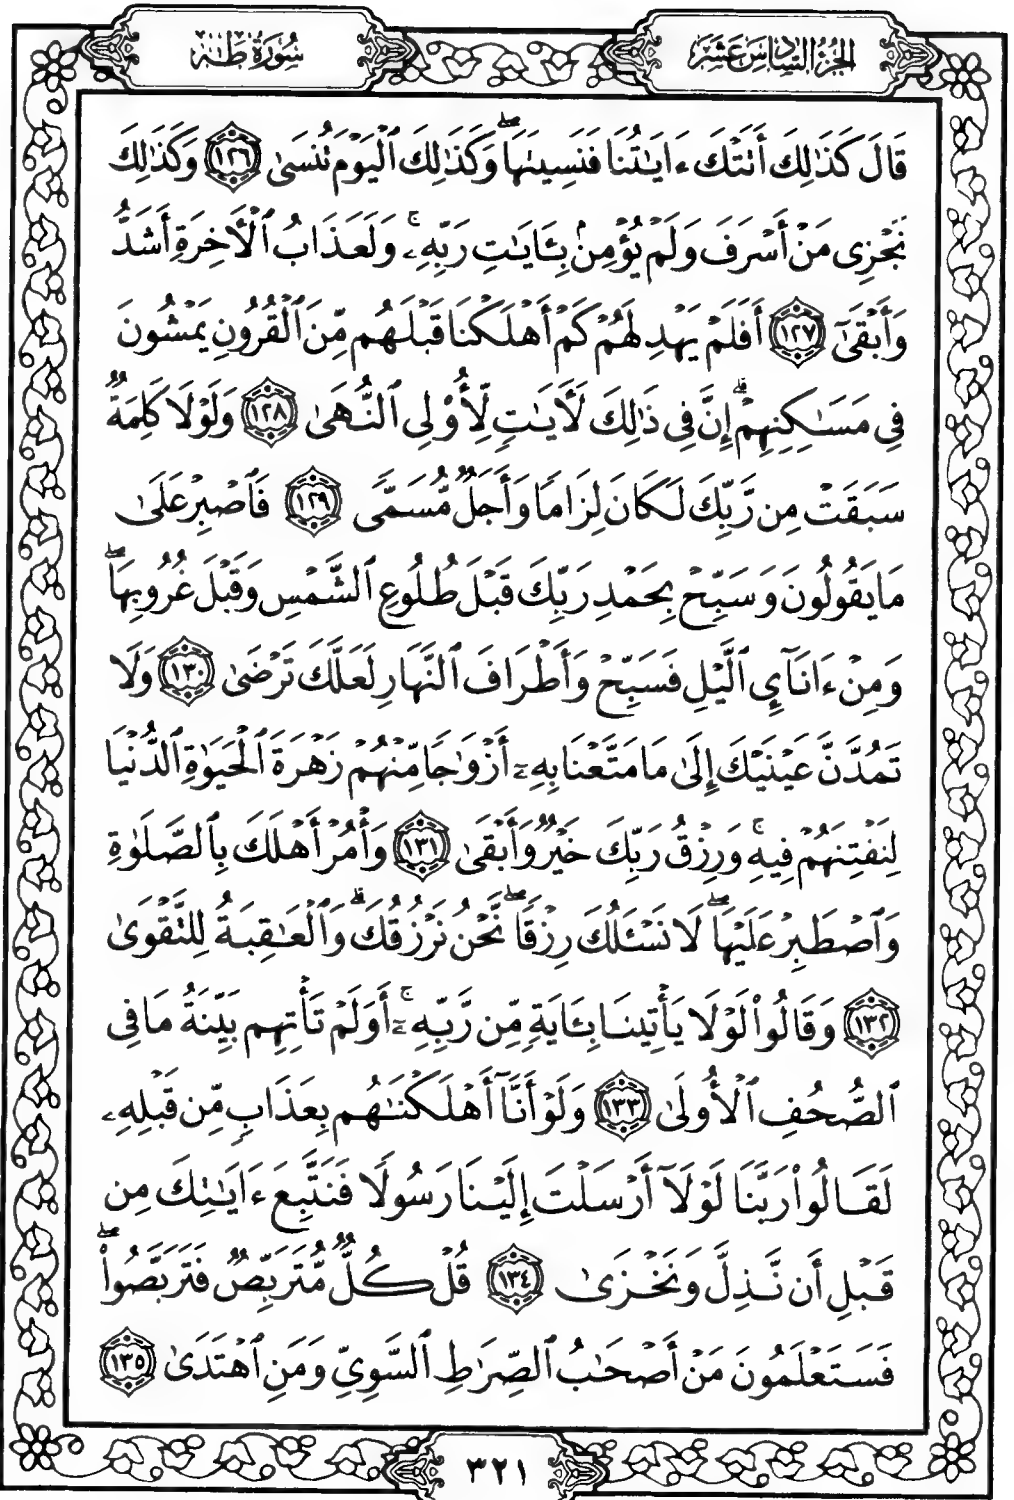 الجزء السادس عشر
سورة طه
قَالَ كَذَٰلِكَ أَتَتْكَ ءَايَـٰتُنَا فَنَسِيتَهَا ۖ وَكَذَٰلِكَ ٱلْيَوْمَ تُنسَىٰ ١٢٦ وَكَذَٰلِكَ
نَجْزِى مَنْ أَسْرَفَ وَلَمْ يُؤْمِنۢ بِـَٔايَـٰتِ رَبِّهِۦ ۚ وَلَعَذَابُ ٱلْـَٔاخِرَةِ أَشَدُّ
وَأَبْقَىٰٓ ١٢٧ أَفَلَمْ يَهْدِ لَهُمْ كَمْ أَهْلَكْنَا قَبْلَهُم مِّنَ ٱلْقُرُونِ يَمْشُونَ
فِى مَسَـٰكِنِهِمْ ۗ إِنَّ فِى ذَٰلِكَ لَـَٔايَـٰتٍ لِّأُو۟لِى ٱلنُّهَىٰ ١٢٨ وَلَوْلَا كَلِمَةٌ
سَبَقَتْ مِن رَّبِّكَ لَكَانَ لِزَامًا وَأَجَلٌ مُّسَمًّى ١٢٩ فَٱصْبِرْ عَلَىٰ
مَا يَقُولُونَ وَسَبِّحْ بِحَمْدِ رَبِّكَ قَبْلَ طُلُوعِ ٱلشَّمْسِ وَقَبْلَ غُرُوبِهَا ۖ
وَمِنْ ءَانَآئِ ٱلَّيْلِ فَسَبِّحْ وَأَطْرَافَ ٱلنَّهَارِ لَعَلَّكَ تَرْضَىٰ ١٣٠ وَلَا
تَمُدَّنَّ عَيْنَيْكَ إِلَىٰ مَا مَتَّعْنَا بِهِۦٓ أَزْوَٰجًا مِّنْهُمْ زَهْرَةَ ٱلْحَيَوٰةِ ٱلدُّنْيَا
لِنَفْتِنَهُمْ فِيهِ ۚ وَرِزْقُ رَبِّكَ خَيْرٌ وَأَبْقَىٰ ١٣١ وَأْمُرْ أَهْلَكَ بِٱلصَّلَوٰةِ
وَٱصْطَبِرْ عَلَيْهَا ۖ لَا نَسْـَٔلُكَ رِزْقًا ۖ نَّحْنُ نَرْزُقُكَ ۗ وَٱلْعَـٰقِبَةُ لِلتَّقْوَىٰ
١٣٢ وَقَالُوا۟ لَوْلَا يَأْتِينَا بِـَٔايَةٍ مِّن رَّبِّهِۦٓ ۚ أَوَلَمْ تَأْتِهِم بَيِّنَةُ مَا فِى
ٱلصُّحُفِ ٱلْأُولَىٰ ١٣٣ وَلَوْ أَنَّآ أَهْلَكْنَـٰهُم بِعَذَابٍ مِّن قَبْلِهِۦ
لَقَالُوا۟ رَبَّنَا لَوْلَآ أَرْسَلْتَ إِلَيْنَا رَسُولًا فَنَتَّبِعَ ءَايَـٰتِكَ مِن
قَبْلِ أَن نَّذِلَّ وَنَخْزَىٰ ١٣٤ قُلْ كُلٌّ مُّتَرَبِّصٌ فَتَرَبَّصُوا۟ ۖ
فَسَتَعْلَمُونَ مَنْ أَصْحَـٰبُ ٱلصِّرَٰطِ ٱلسَّوِىِّ وَمَنِ ٱهْتَدَىٰ ١٣٥
٣٢١